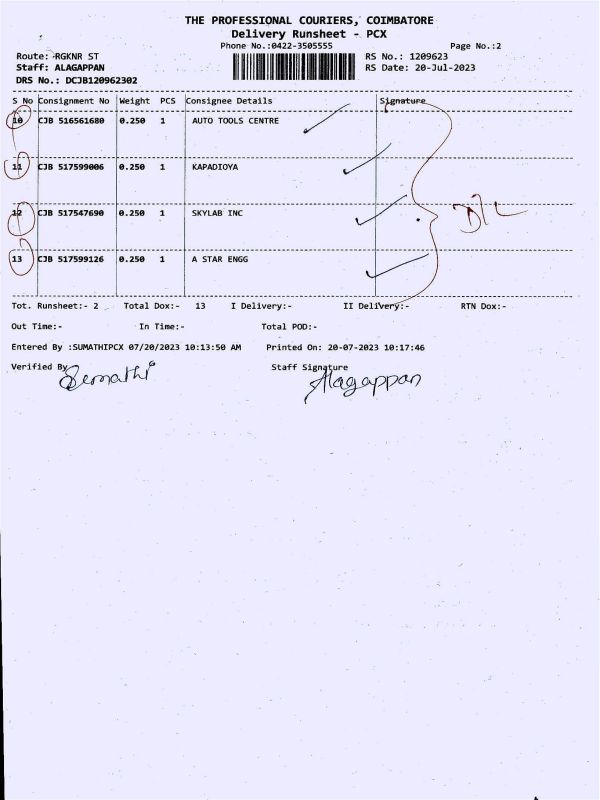 THE PROFESSIONAL COURIERS, COIMBATORE
Delivery Runsheet - PCX
Phone No.:0422-3505555 Page No.:2
Route: RGKNR ST RS No.: 1209623
Staff: ALAGAPPAN RS Date: 20-Jul-2023
DRS No.: DCJB120962302
S No Consignment No Weight PCS Consignee Details Signature
10 CJB 516561680 0.250 1 AUTO TOOLS CENTRE
11 CJB 517599006 0.250 1 KAPADIOYA
12 CJB 517547690 0.250 1 SKYLAB INC
13 CJB 517599126 0.250 1 A STAR ENGG
Tot. Runsheet:- 2 Total Dox:- 13 I Delivery:- II Delivery:- RTN Dox:-
Out Time:- In Time:- Total POD:-
Entered By :SUMATHIPCX 07/20/2023 10:13:50 AM Printed On: 20-07-2023 10:17:46
Verified By Staff Signature
Sumathi Alagappan